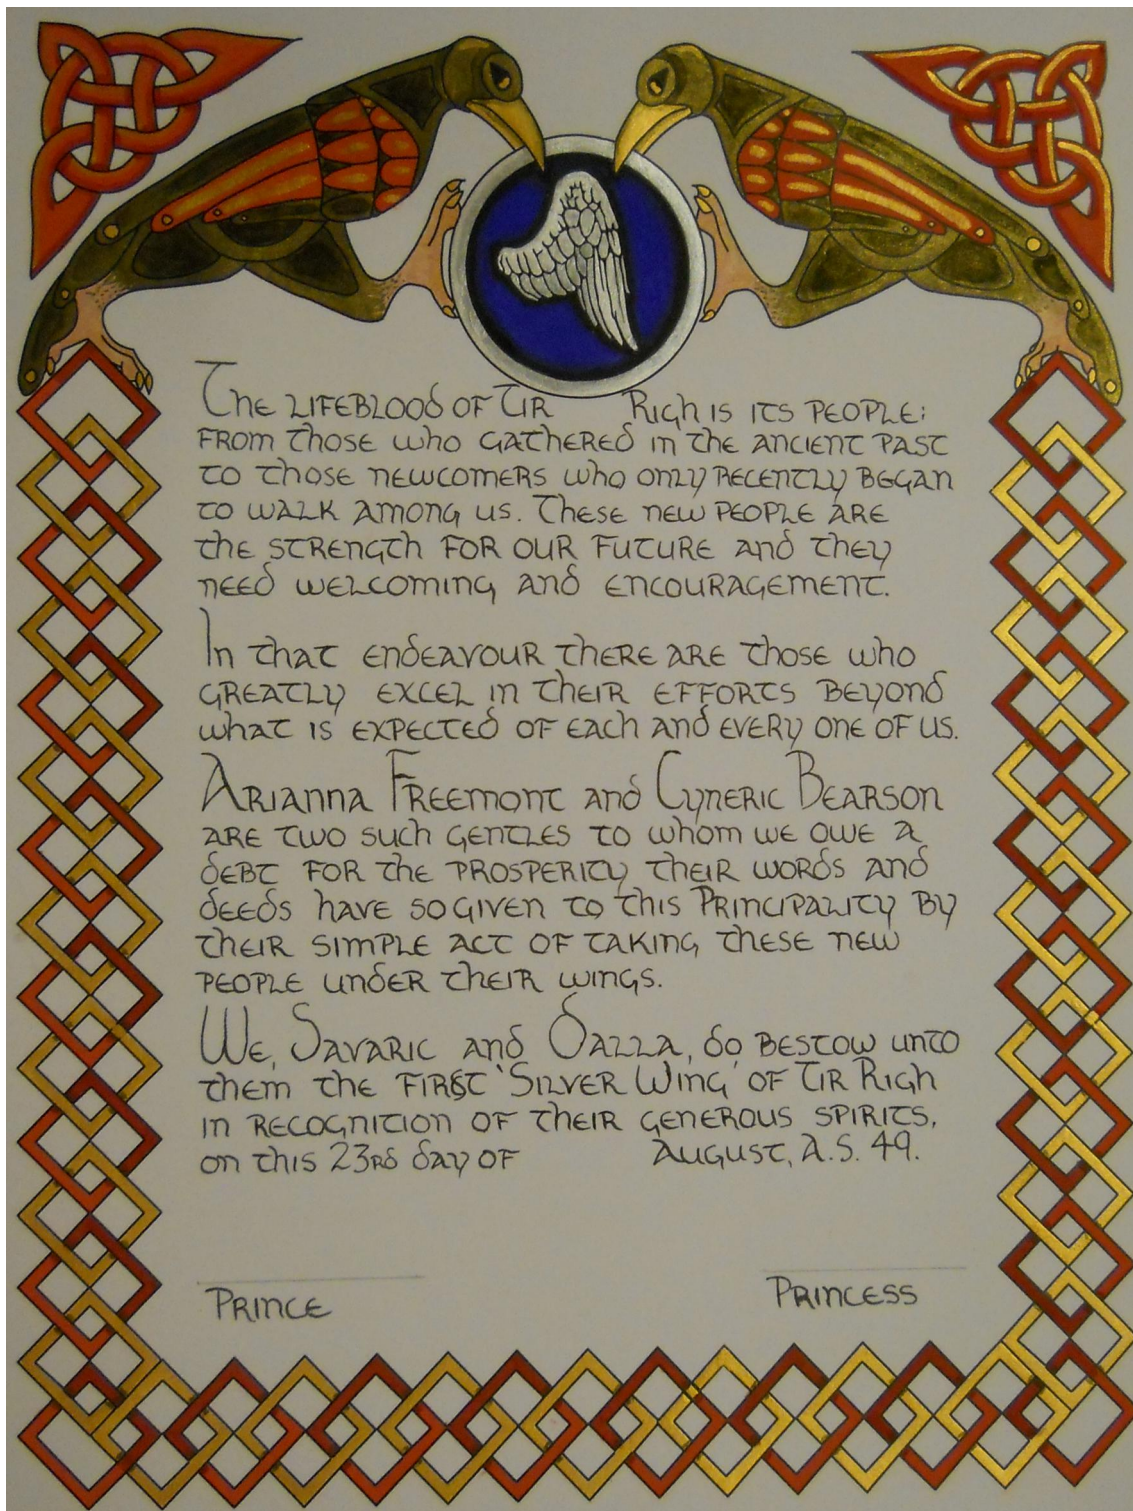 The lifeblood of Tir Righ is its people;
from those who gathered in the ancient past
to those newcomers who only recently began
to walk among us. These new people are
the strength for our future and they
need welcoming and encouragement.
In that endeavour there are those who
greatly excel in their efforts beyond
what is expected of each and every one of us.
Arianna Freemont and Cyneric Bearson
are two such gentles to whom we owe a
debt for the prosperity their words and
deeds have so given to this Principality by
their simple act of taking these new
people under their wings.
We, Savaric and Dalla, do bestow unto
them the first 'Silver Wing' of Tir Righ
in recognition of their generous spirits,
on this 23rd day of August, A.S. 49.
Prince Princess